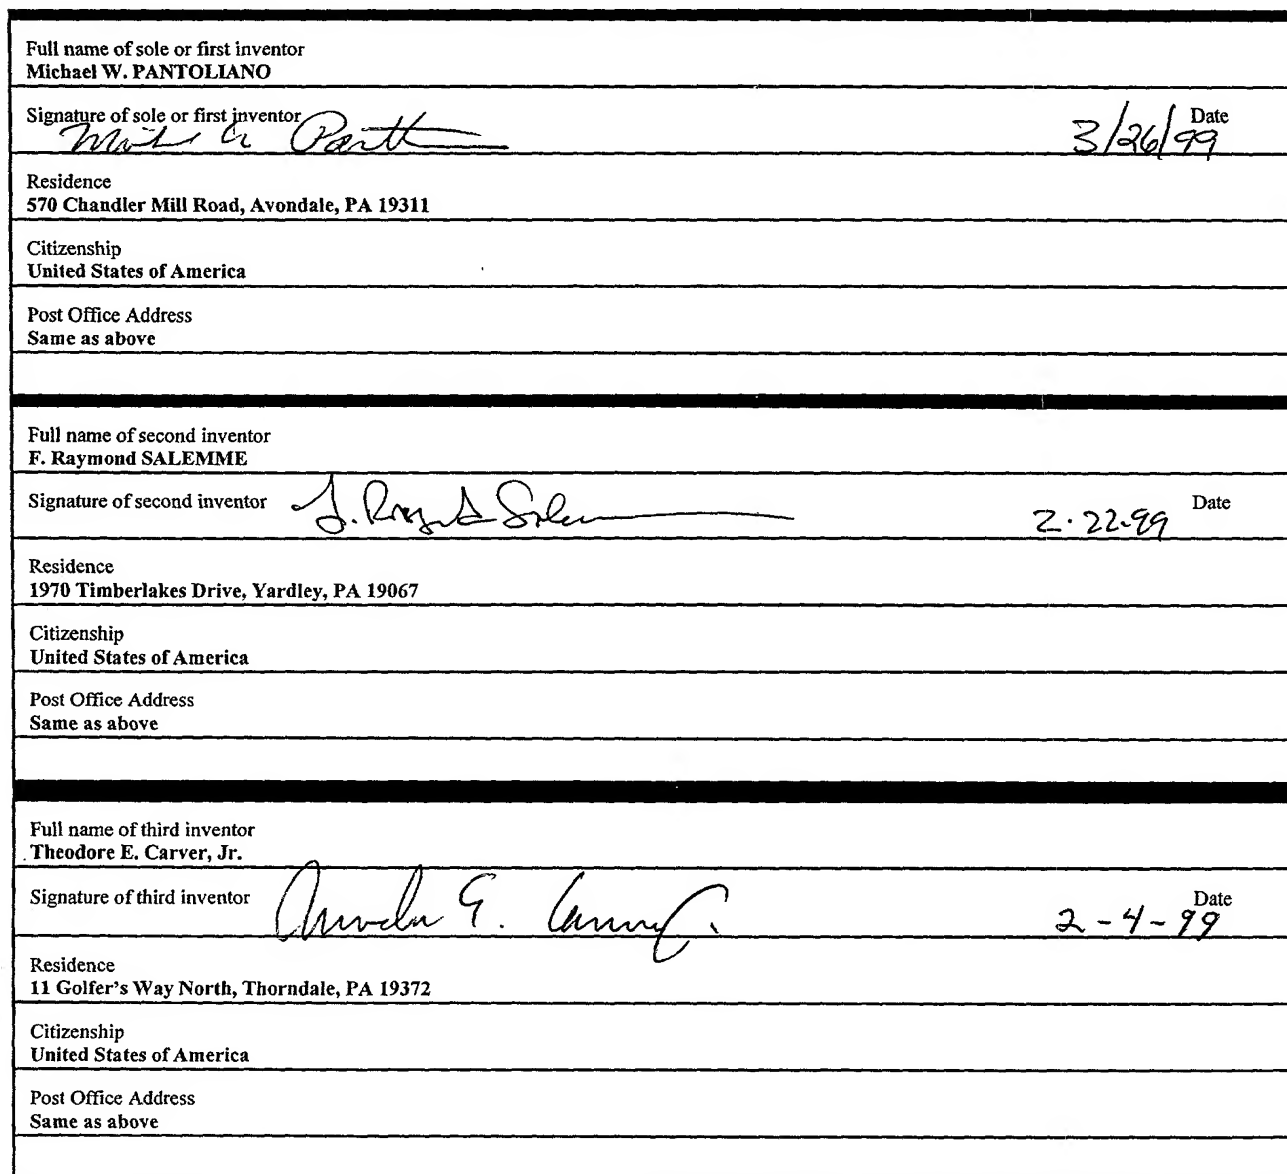 Full name of sole or first inventor
Michael W. PANTOLIANO
Signature of sole or first inventor Date
3/26/99
Residence
570 Chandler Mill Road, Avondale, PA 19311
Citizenship
United States of America
Post Office Address
Same as above
Full name of second inventor
F. Raymond SALEMME
Signature of second inventor Date
2.22.99
Residence
1970 Timberlakes Drive, Yardley, PA 19067
Citizenship
United States of America
Post Office Address
Same as above
Full name of third inventor
Theodore E. Carver, Jr.
Signature of third inventor Date
2-4-99
Residence
11 Golfer's Way North, Thorndale, PA 19372
Citizenship
United States of America
Post Office Address
Same as above